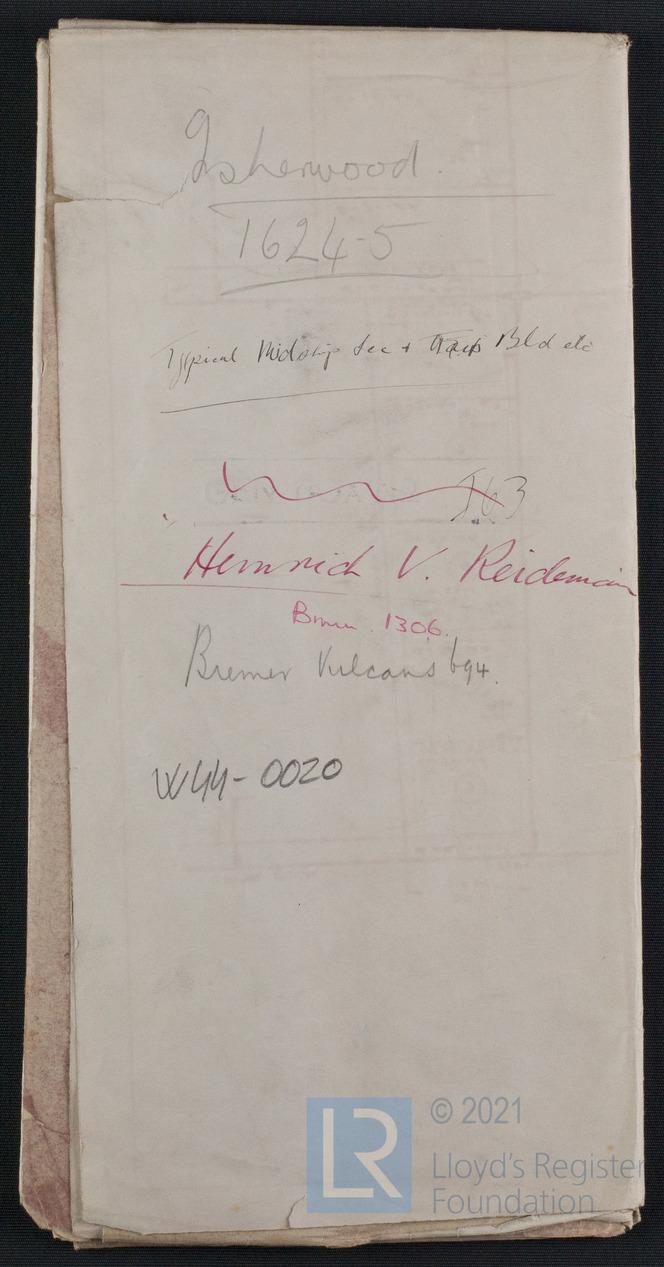 Isherwood.
1624-5
Typical Midship Sec + Bld etc
163
Heinrich V. Reidemann
1306.
Bremer Vulcans 694.
W44-0020
LR
© 2021
Lloyd's Register
Foundation